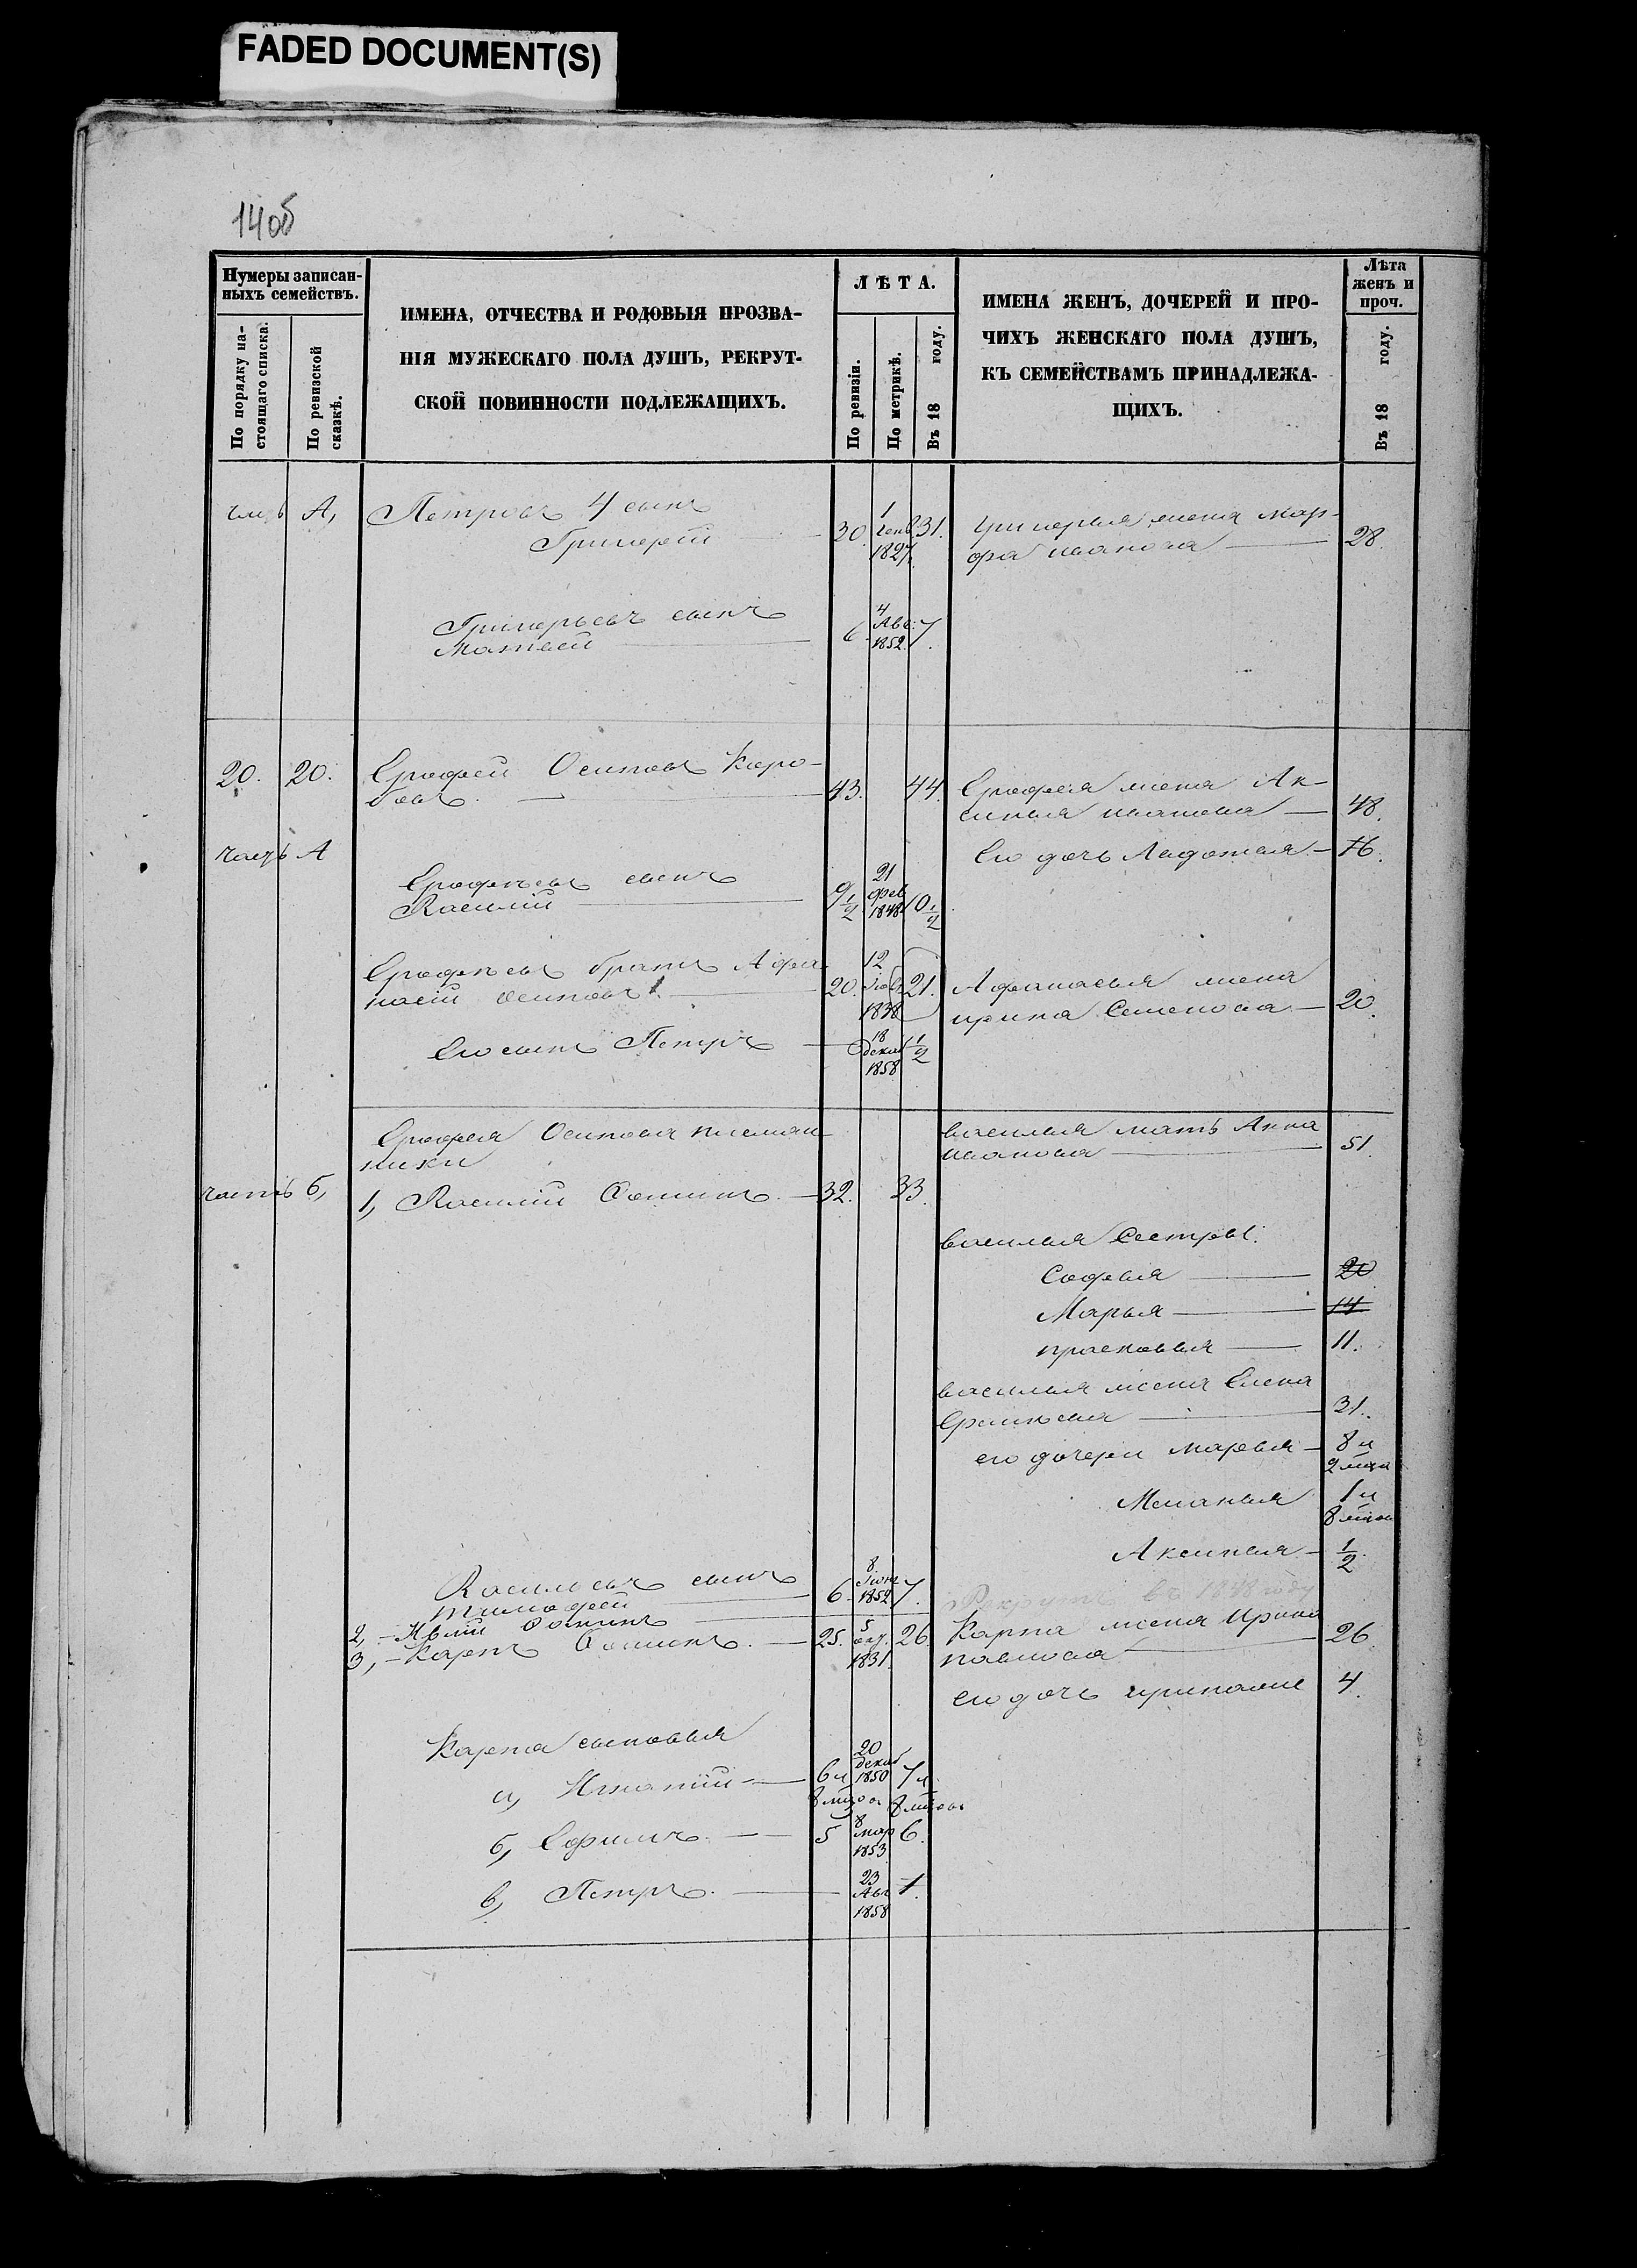 FADED DOCUMENT(S)
140б
Нумеры записан-
ныхъ семействъ.
По порядку на-
стоящаго списка.
По ревизской
сказкѣ.
ИМЕНА, ОТЧЕСТВА И РОДОВЫЯ ПРОЗВА-
НІЯ МУЖЕСКАГО ПОЛА ДУШЪ, РЕКРУТ-
СКОЙ ПОВИННОСТИ ПОДЛЕЖАЩИХЪ.
ЛѢТА.
По ревизіи.
По метрикѣ.
Въ 18 году.
ИМЕНА ЖЕНЪ, ДОЧЕРЕЙ И ПРО-
ЧИХЪ ЖЕНСКАГО ПОЛА ДУШЪ,
КЪ СЕМЕЙСТВАМЪ ПРИНАДЛЕЖА-
ЩИХЪ.
Лѣта
женъ и
проч.
Въ 18 году.
А, Петровъ 4 сынъ
Григорій 30. 1 Генв. 1827. 31.
Григорья жена Мар-
фа Иванова 28.
Григорьевъ сынъ
Матвей 6. 4 Авг. 1852. 7.
20. 20. Ерофей Осиповъ Коро-
бовъ. 43. 44.
Ерофея жена Ак-
синья Иванова 48.
часть А
Его дочь 16.
Ерофеевъ сынъ
Василій 9 1/2 21 фев 1848 10 1/2
Ерофеевъ братъ Афа-
насій Осиповъ. 20. 12 1838 21.
Афанасья жена
Ирина Семенова 20.
Его сынъ Петръ 18 декаб 1858 1/2
Ерофея Осипова племян-
ники
Василья мать Анна
Иванова 51.
часть б,
1, Василій Фоминъ. 32. 33.
Василья сестры:
Софья 20
Марья 14
Прасковья 11.
Василья жена Елена
31.
его дочери Марья 8 л
2 мца
Меланья 1 л
8 мцов
Аксинья 1/2
Васильевъ сынъ
Тимофей 6. 8. Іюня 1852 7.
Рекрутъ въ 1848 году
2, Фоминъ
3, Карпъ Фоминъ. 25. 5 окт. 1831. 26.
Карпа жена Ирина
Павлова 26.
Его дочь 4.
Карпа сыновья
а, Игнатій 6 л 8 мцов 20 декаб 1850 7 л 8 мцовъ
б, Ефимъ. 5 8 мар 1853 6.
в, Петръ. 23 Авг 1858 1.